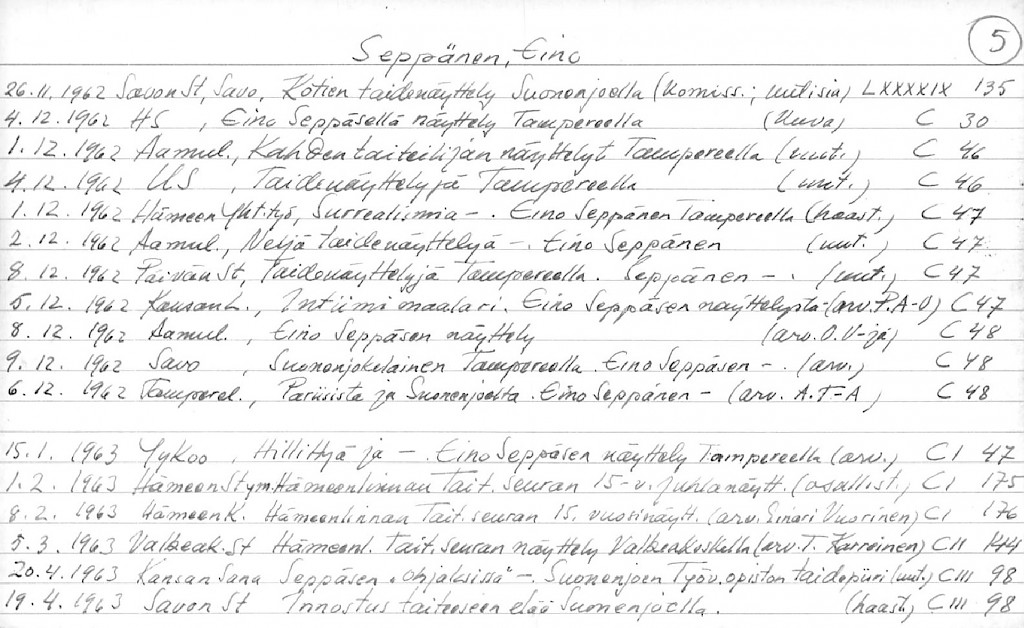 5
Seppänen, Eino
26.11.1962 Savon St, Savo, Kotien taidenäyttely Suonenjoella (Komiss.; uutisia) LXXXXIX 135
4.12.1962 HS , Eino Seppäsellä näyttely Tampereella (kuva) C 30
1.12.1962 Aamul., Kahden taiteilijan näyttelyt Tampereella (uut.) C 46
4.12.1962 US , Taidenäyttelyjä Tampereella (uut.) C 46
1.12.1962 Hämeen Yht.työ, Surrealismia -. Eino Seppänen Tampereella (haast.) C 47
2.12.1962 Aamul., Neljä taidenäyttelyä -. Eino Seppänen (uut.) C 47
8.12.1962 Päivän St, Taidenäyttelyjä Tampereella. Seppänen -. (uut.) C 47
5.12.1962 KansanL., Intiimi maalari. Eino Seppäsen näyttelystä - (arv. P.A-O) C 47
8.12.1962 Aamul. , Eino Seppäsen näyttely (arv. O.V-jä) C 48
9.12.1962 Savo , Suonenjokelainen Tampereella. Eino Seppäsen -. (arv.) C 48
6.12.1962 Tamperel., Pariisista ja Suonenjoelta. Eino Seppänen - (arv. A.T-A) C 48
15.1.1963 YyKoo , Hillittyä ja -. Eino Seppäsen näyttely Tampereella (arv.) CI 47
1.2.1963 HämeenSt ym. Hämeenlinnan Tait. seuran 15-v. juhlanäytt. (osallist.) CI 175
8.2.1963 HämeenK. Hämeenlinnan Tait. seuran 15. vuosinäytt. (arv. Einari Vuorinen) CI 176
5.3.1963 Valkeak. St Hämeenl. Tait. seuran näyttely Valkeakoskella (arv. T. Karroinen) CII 144
20.4.1963 Kansan Sana Seppäsen "ohjaksissa" -. Suonenjoen Työv. opiston taidepiiri (uut.) CIII 98
19.4.1963 Savon St Innostus taiteeseen elää Suonenjoella. (haast.) CIII 98